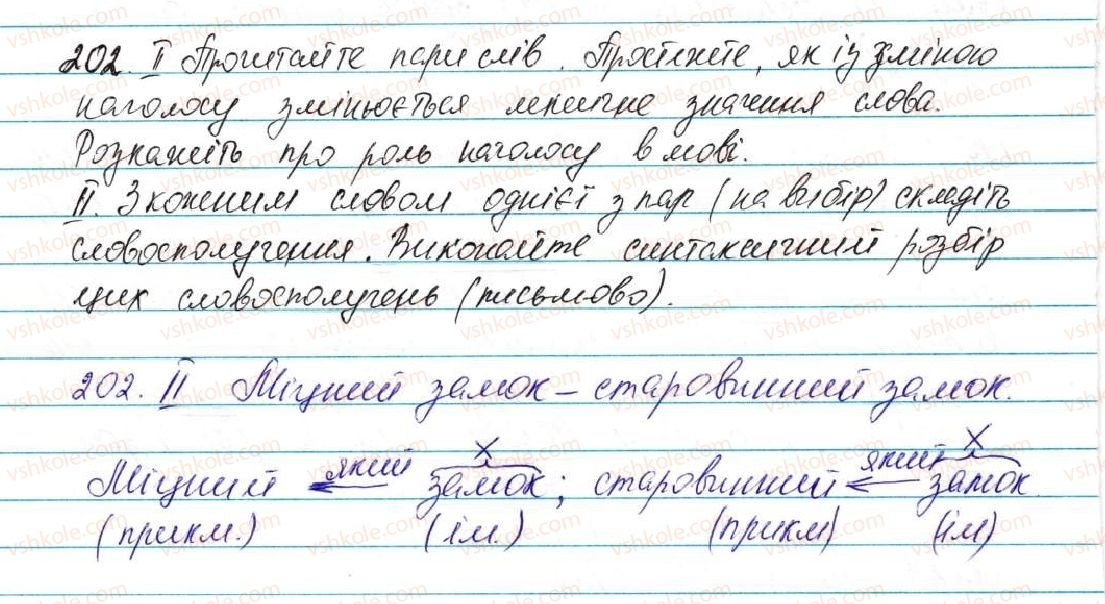 202. І Прочитайте пари слів. Простежте, як із зміною
наголосу змінюється лексичне значення слова.
Розкажіть про роль наголосу в мові.
ІІ. З кожним словом однієї з пар (на вибір) складіть
словосполучення. Виконайте синтаксичний розбір
цих словосполучень (письмово).
202. ІІ Міцний замок – старовинний замок.
х х
який який
Міцний замок; старовинний замок
(прикм.) (ім.) (прикм) (ім)
vshkole.com